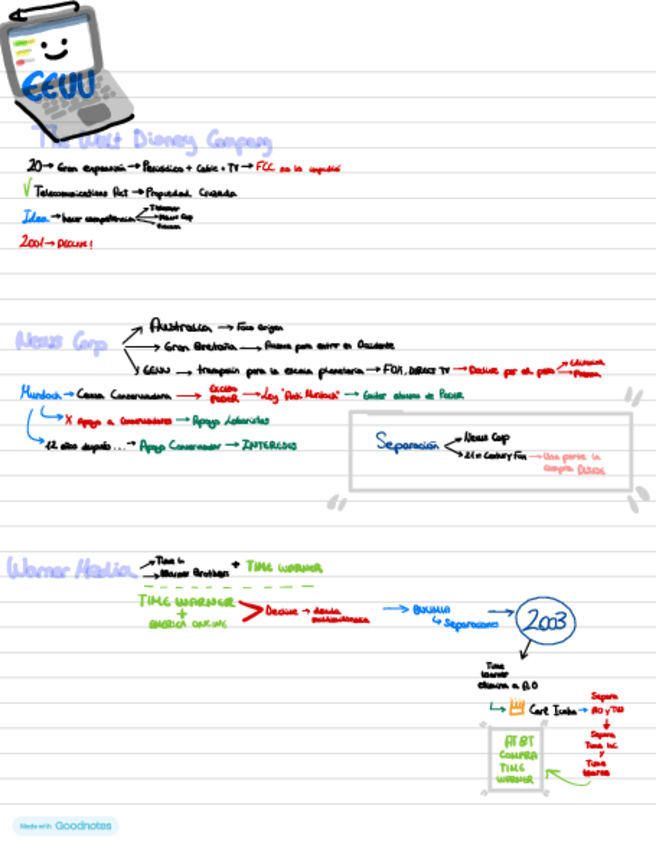 EEUU
The Walt Disney Company
20 → Gran expansión → Periódico + Cable + TV → FCC no lo impidió
√ Telecomunications Act → Propiedad Cruzada
Idea → hacer competencia
News Corp
Viacom
2001 → DECLIVE!
News Corp
Australia → Foco origen
Gran Bretaña → Puente para entrar en Occidente
EEUU → trampolín para la escala planetaria → FOX, DIRECT TV → Declive por el peso
Prensa
Murdoch → Causa Conservadora → EXCESO PODER → Ley "Anti Murdoch" → Evitar abuso de PODER
X Apoyo a Conservadores → Apoya Laboristas
12 años después... → Apoyo Conservador → INTERESES
Separación
News Corp
21st Century Fox → Una parte la
compra DISNEY
Warner Media
Time Inc
Warner Brothers
+ TIME WARNER
TIME WARNER
+
AMERICA ONLINE
Declive → deuda
multimillonaria
→ BULIMIA
↳ Separaciones
→ 2003
Time
Warner
elimina a AO
↳ Carl Icahn →
Separa
AO y TW
Separa
Time Inc
y
Time
Warner
AT&T
COMPRA
TIME
WARNER
Made with Goodnotes